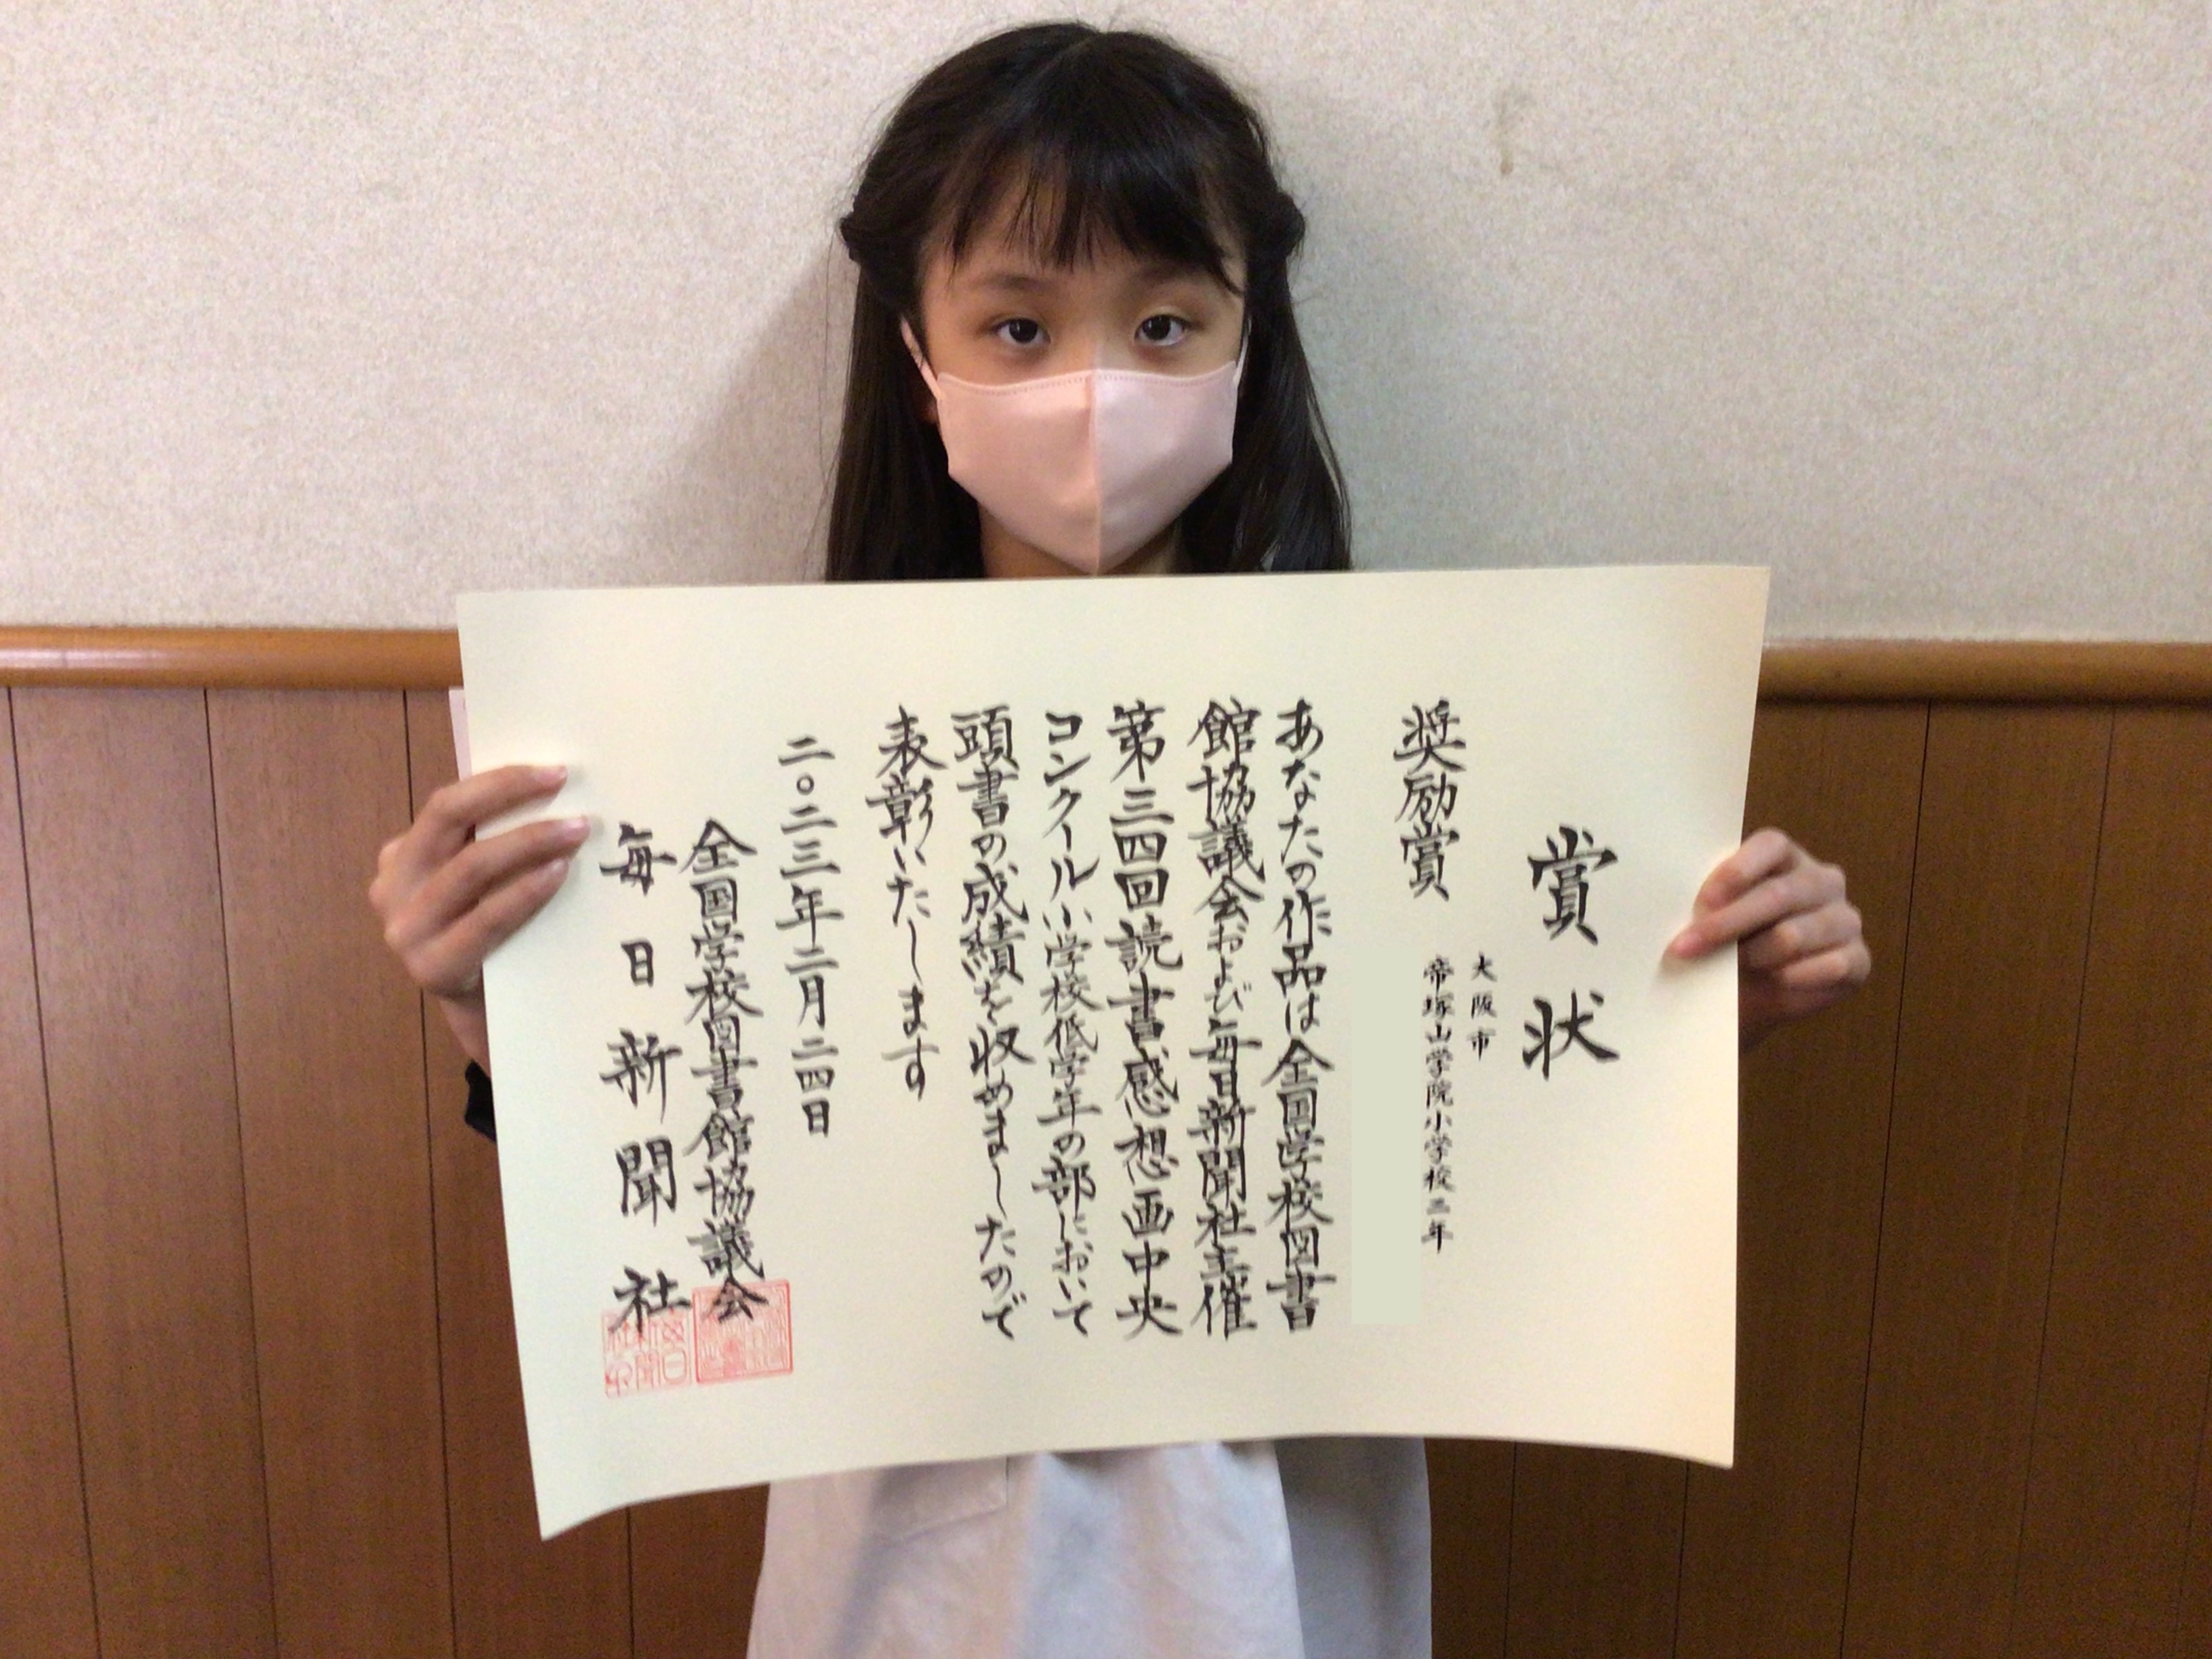 賞状
大阪市
帝塚山学院小学校三年
奨励賞
あなたの作品は全国学校図書
館協議会および毎日新聞社主催
第三四回読書感想画中央
コンクール小学校低学年の部において
頭書の成績を収めましたので
表彰いたします
二〇二三年二月二四日
全国学校図書館協議会
毎日新聞社